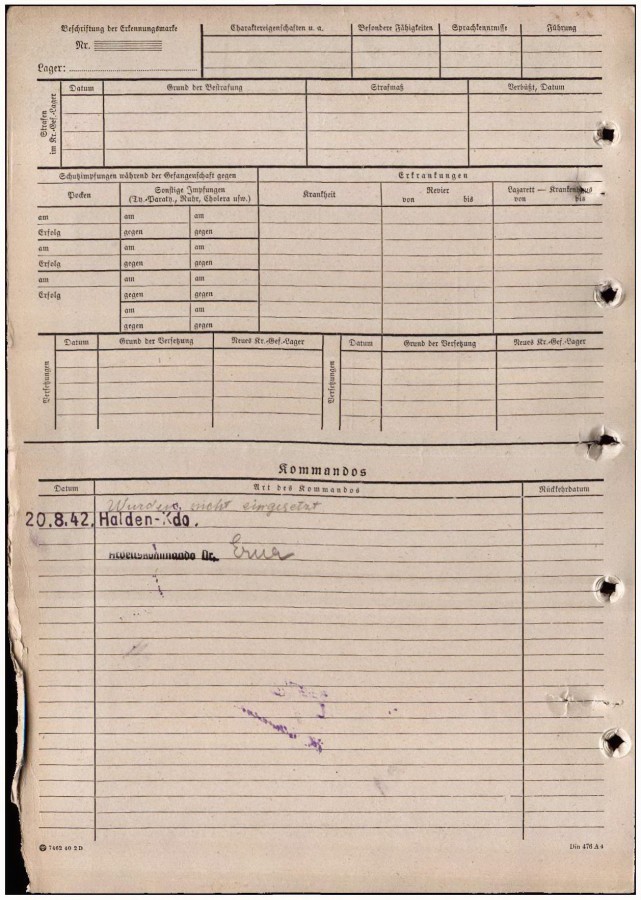 Beschriftung der Erkennungsmarke
Nr.
Lager:
Charaktereigenschaften u. a.
Besondere Fähigkeiten
Sprachkenntnisse
Führung
Strafen
im Kr.-Gef.-Lager
Datum
Grund der Bestrafung
Strafmaß
Verbüßt, Datum
Schutzimpfungen während der Gefangenschaft gegen
Erkrankungen
Pocken
Sonstige Impfungen
(Ty.-Paraty., Ruhr, Cholera usw.)
Krankheit
Revier
von bis
Lazarett — Krankenhaus
von bis
am am am
Erfolg gegen gegen
am am am
Erfolg gegen gegen
am am am
Erfolg gegen gegen
am am
gegen gegen
Versetzungen
Datum
Grund der Versetzung
Neues Kr.-Gef.-Lager
Versetzungen
Datum
Grund der Versetzung
Neues Kr.-Gef.-Lager
Kommandos
Datum
Art des Kommandos
Rückkehrdatum
nicht eingesetzt
20.8.42. Halden-Kdo.
Arbeitskommando Nr. Erna
7462 40 2 D
Din 476 A 4